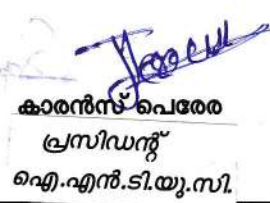 കാരൻസ് പെരേര
പ്രസിഡന്റ്
ഐ.എൻ.ടി.യു.സി.